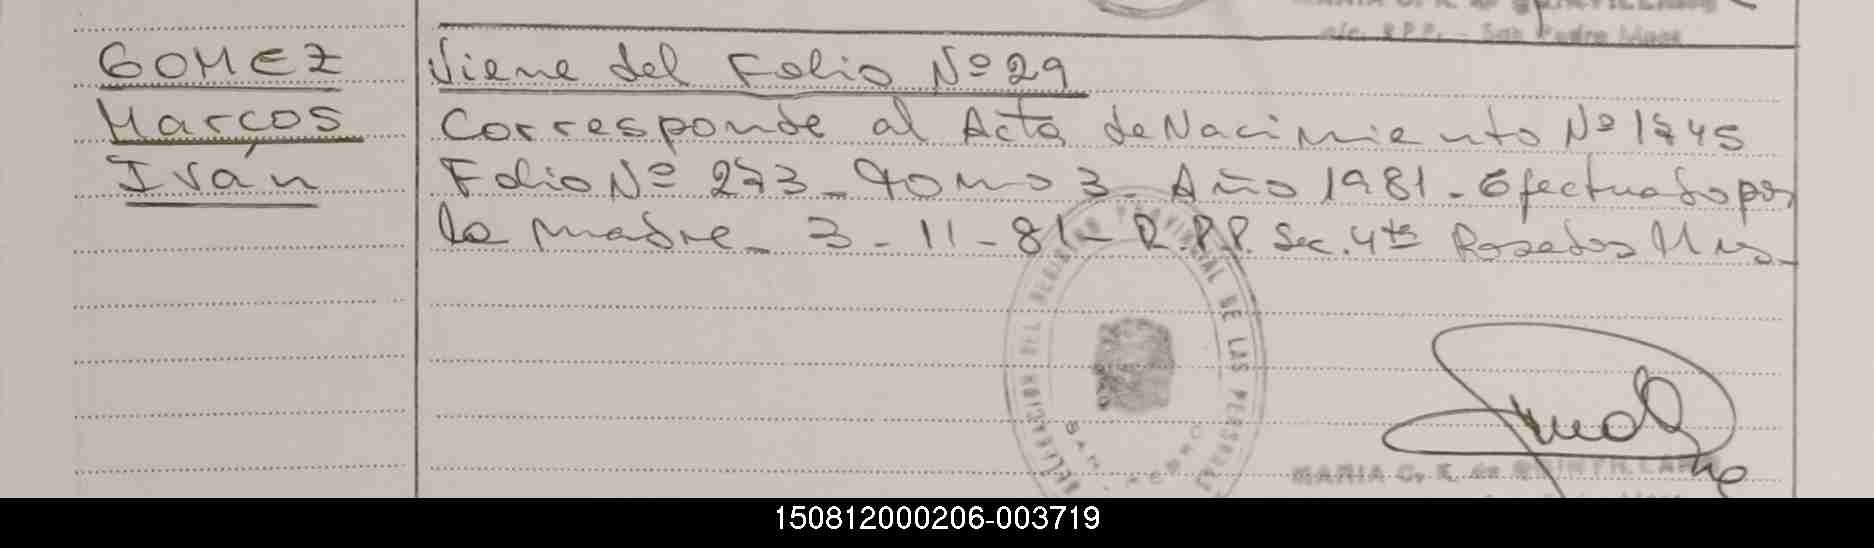 MARIA C. K. de QUINTILLAN
a/c. R.P.P. - San Pedro Mnes
GOMEZ
Marcos
Iván
Viene del Folio Nº 29
Corresponde al Acta de Nacimiento Nº 1745
Folio Nº 273 - Tomo 3 - Año 1981 - Efectuado por
la madre - 3 - 11 - 81 - R.P.P. Sec. 4ta Posadas Mns.
DELEGACION DEL REGISTRO PROVINCIAL DE LAS PERSONAS
SAN PEDRO
MARIA C. K. de QUINTILLAN
150812000206-003719